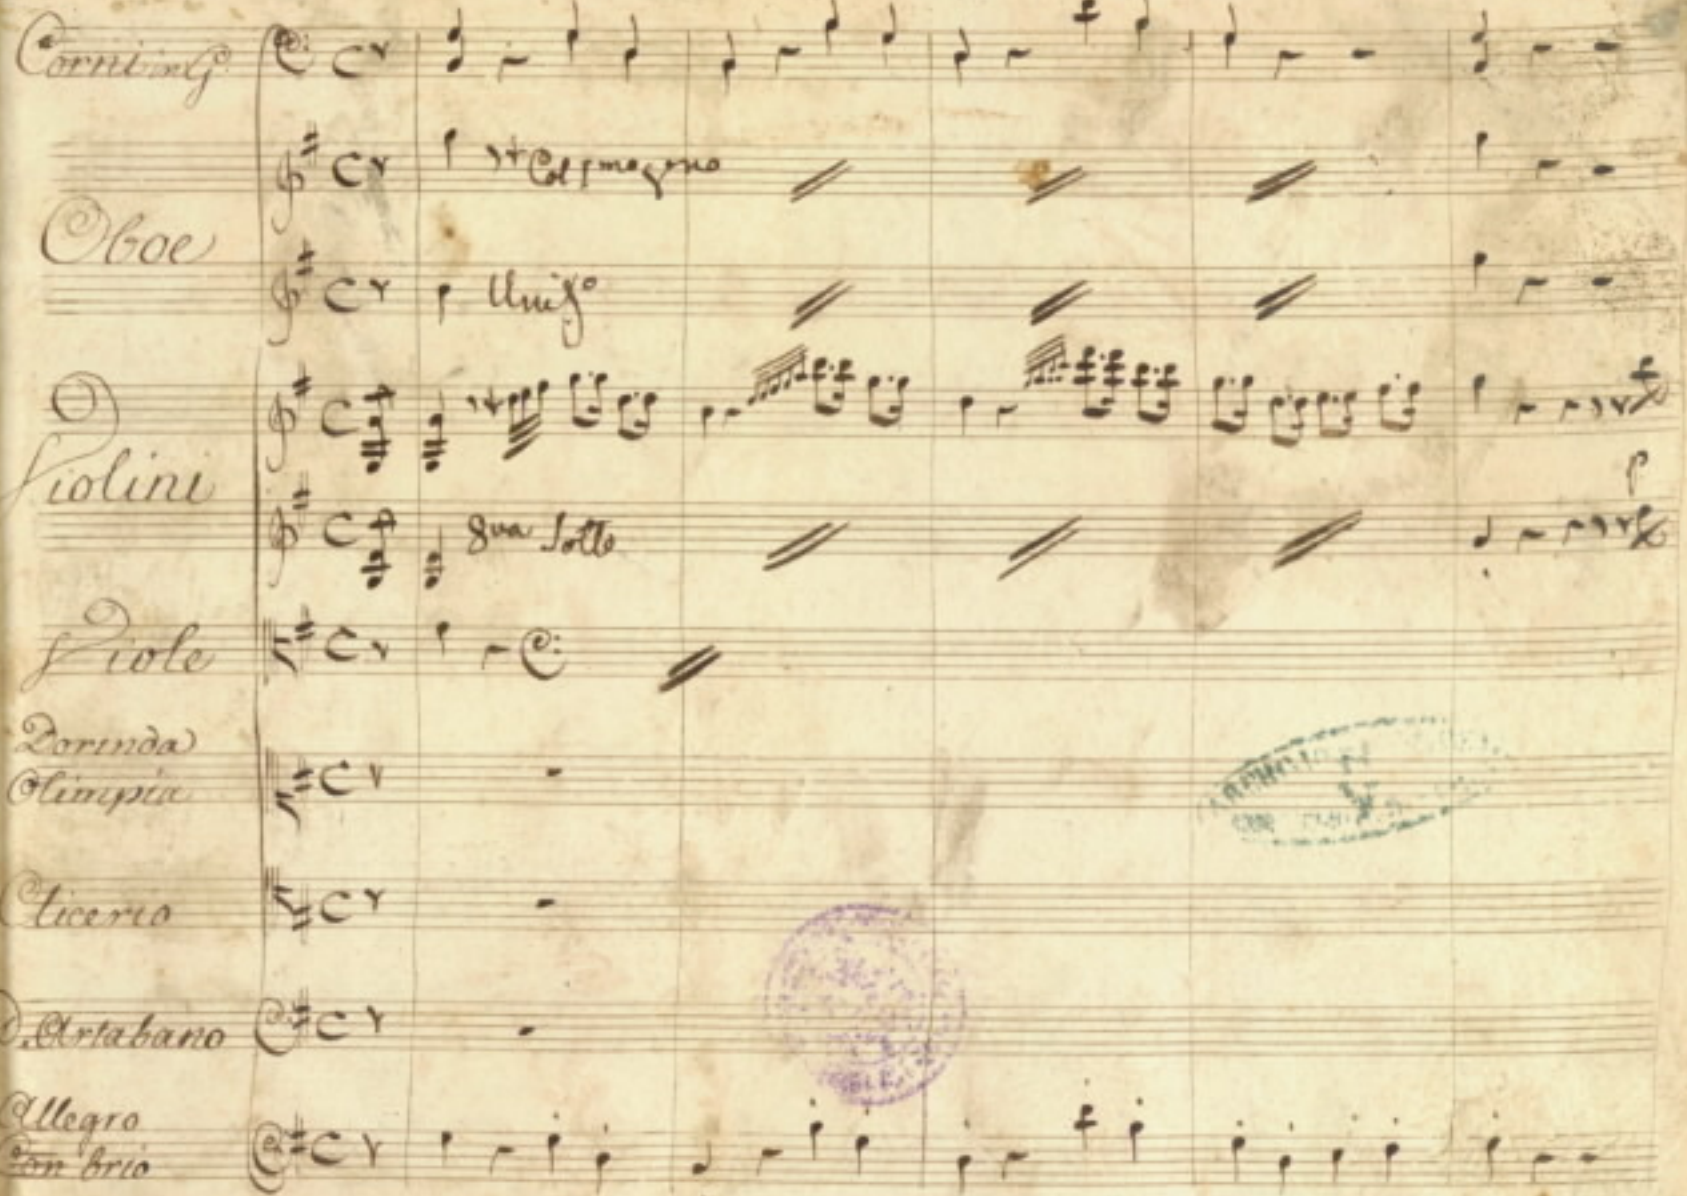 Corni in G
Oboe
Unis°
Violini
8va Sotto
p
Viole
Dorinda
Olimpia
Glicerio
D. Artabano
Allegro
Con brio